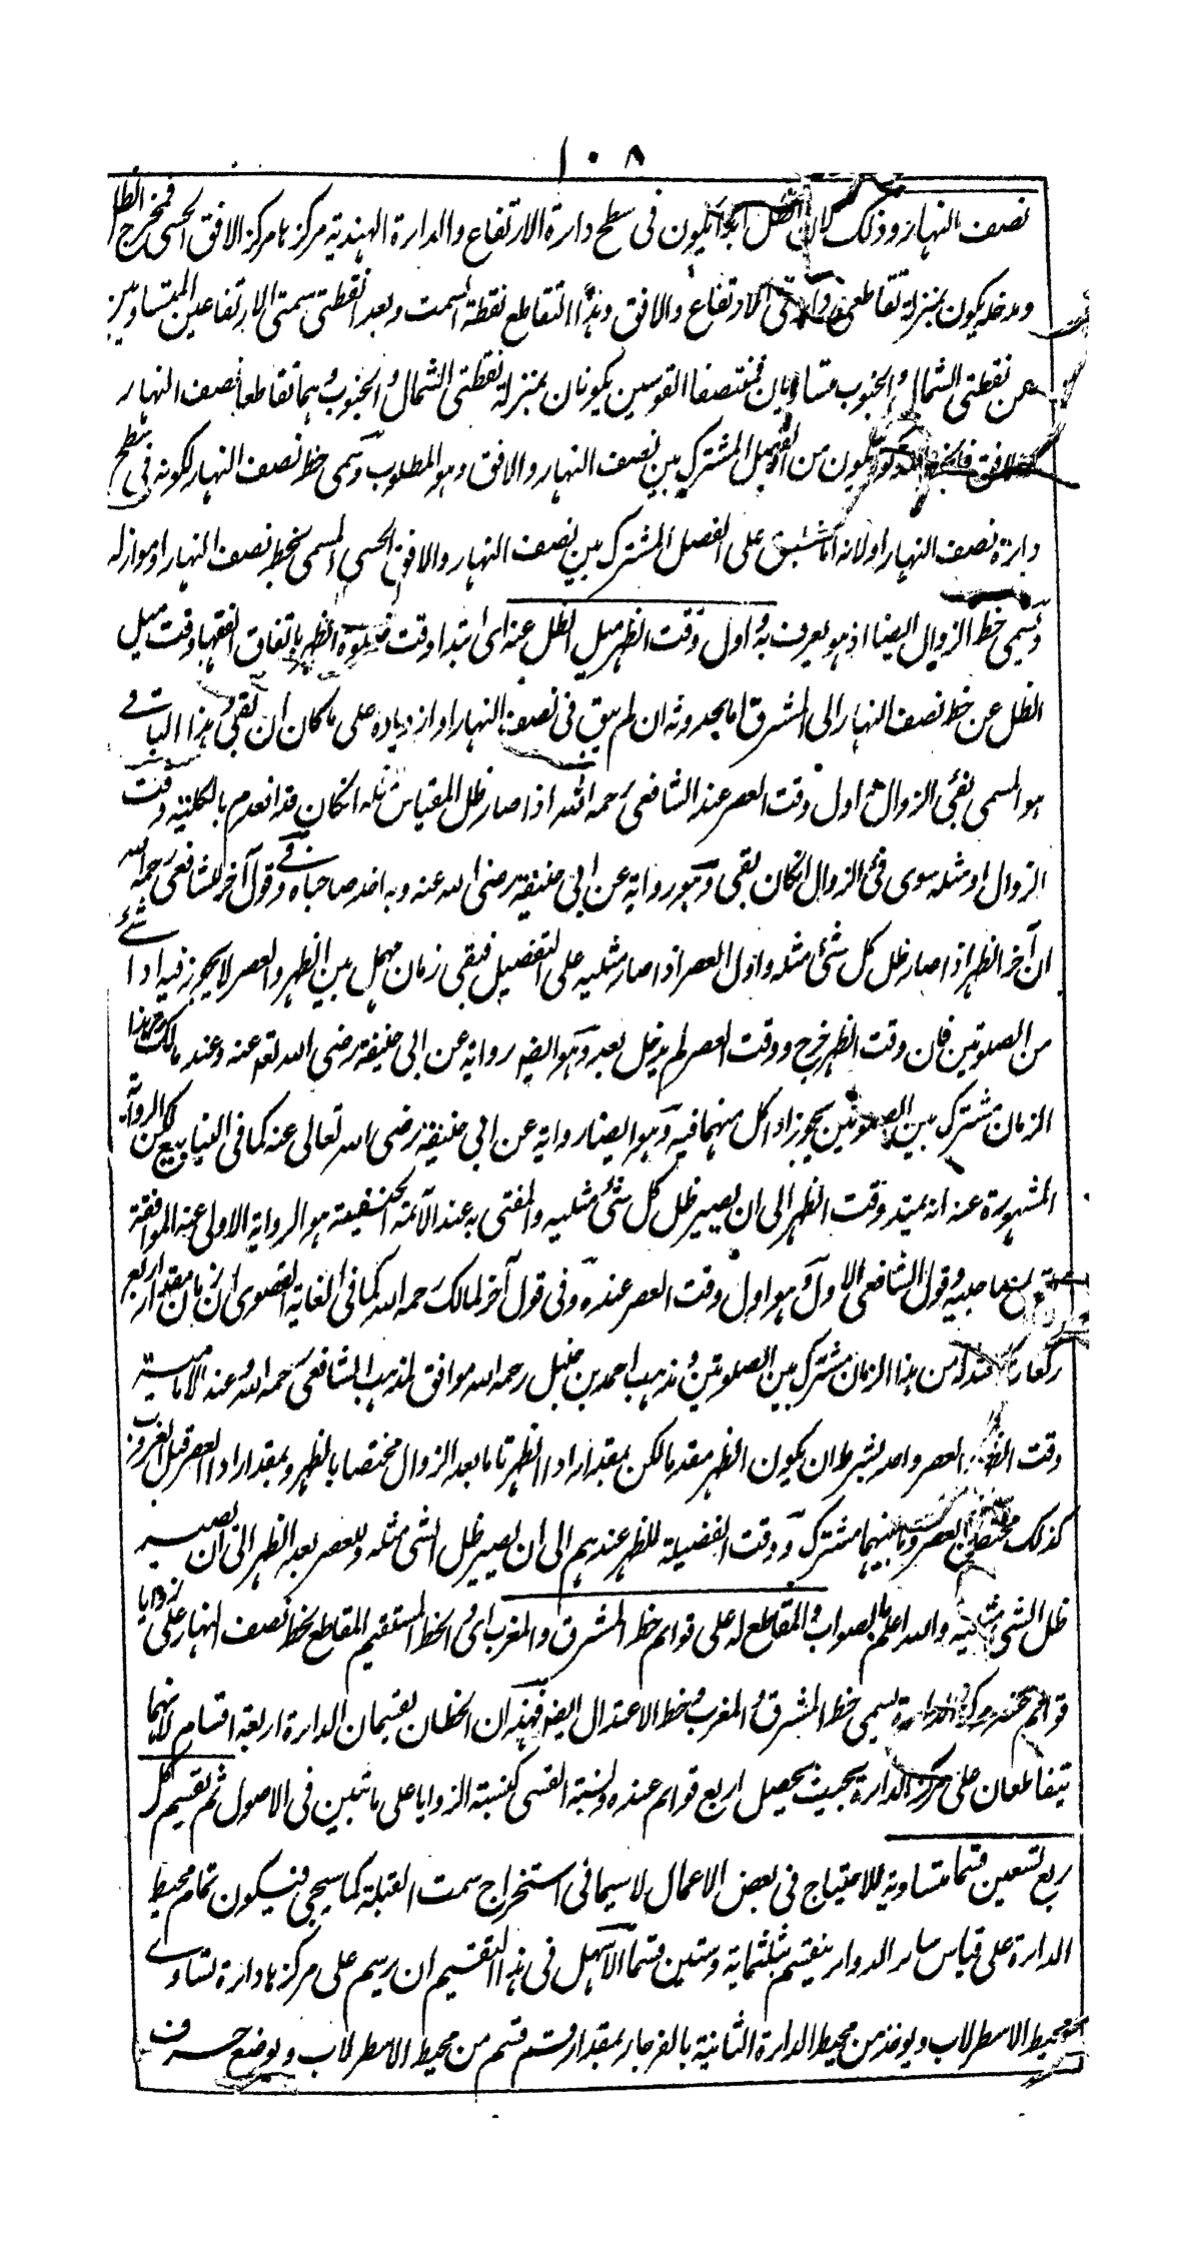 ١٠٨
نصف النهار وذلك لان الظل ابدا يكون فى سطح دائرة الارتفاع والدائرة الهندية مركزها مركز الافق الحسى فمخرج الظل
ومدخله يكون بمنزلة تقاطعى دائرتى الارتفاع والافق وهذا التقاطع نقطة السمت وبعد نقطتى سمتى الارتفاعين المتساويين
عن نقطتى الشمال والجنوب متساويان فمنتصفا القوسين يكونان بمنزلة نقطتى الشمال والجنوب وهما تقاطعا نصف النهار
والافق فالخط المذكور يكون من الفصل المشترك بين نصف النهار والافق وهو المطلوب وسمى خط نصف النهار لكونه فى سطح
دائرة نصف النهار اولانه انما ينطبق على الفصل المشترك بين نصف النهار والافق الحسى المسمى بخط نصف النهار او موازله
ويسمى خط الزوال ايضا اذ هو يعرف به واول وقت الظهر ميل الظل عنه اى ابتدا وقت صلوة الظهر باتفاق الفقها وقت ميل
الظل عن خط نصف النهار الى المشرق اما بحدوثه ان لم يبق فى نصف النهار او ازدياده على ما كان ان بقى وهذا الباقى
هو المسمى بفئ الزوال واول وقت العصر عند الشافعى رحمه الله اذا صار ظل المقياس مثله انكان قد انعدم بالكلية وقت
الزوال او مثله سوى فئ الزوال انكان بقى وهو رواية عن ابى حنيفة رضى الله عنه وبه اخذ صاحباه وفى قول آخر للشافعى رحمه الله
ان آخر الظهر اذا صار ظل كل شئ مثله واول العصر اذا صار مثليه على التفصيل فيبقى زمان مهمل بين الظهر والعصر لا يجوز فيه اداء شئ
من الصلوتين فان وقت الظهر خرج ووقت العصر لم يدخل بعد وهو ايضا رواية عن ابى حنيفة رضى الله تعه عنه وعند مالك رح هذا
الزمان مشترك بين الصلوتين يجوز اداء كل منهما فيه وهو ايضا رواية عن ابى حنيفة رضى الله تعالى عنه كما فى الينابيع لكن الرواية
المشهورة عنه انه يمتد وقت الظهر الى ان يصير ظل كل شئ مثليه والمفتى به عند الائمة الحنفية هو الرواية الاولى عنه الموافقة
مع صاحبيه وقول الشافعى الاول وهو اول وقت العصر عنده وفى قول آخر لمالك رحمه الله كما فى الغاية القصوى ان زمان مقدار اربع
ركعات عنده من هذا الزمان مشترك بين الصلوتين ومذهب احمد بن حنبل رحمه الله موافق لمذهب الشافعى رحمه الله وعند الامامية
وقت الظهر والعصر واحد بشرط ان يكون الظهر مقدما لكن بمقدار اداء الظهر تاما بعد الزوال مختصا بالظهر وبمقدار اداء العصر قبل الغروب
كذلك مختص بالعصر وما بينهما مشترك ووقت الفضيلة للظهر عندهم الى ان يصير ظل الشئ مثله وللعصر بعد الظهر الى ان يصير
ظل الشئ مثليه والله اعلم بالصواب والمقاطع له على قوائم خط المشرق والمغرب اى والخط المستقيم المقاطع لخط نصف النهار على زوايا
قوائم عند مركز الدائرة يسمى خط المشرق والمغرب وخط الاعتدال ايضا فهذان الخطان يقسمان الدائرة اربعة اقسام لانهما
يتقاطعان على مركز الدائرة بحيث يحصل اربع قوائم عنده ونسبة القسى كنسبة الزوايا على ما تبين فى الاصول ثم يقسم كل
ربع تسعين قسما متساوية للاحتياج فى بعض الاعمال لاسيما فى استخراج سمت القبلة كما سيجى فيكون تمام محيط
الدائرة على قياس سائر الدوائر ينقسم بثلثمائة وستين قسما الاسهل فى هذا التقسيم ان يرسم على مركزها دائرة تساوى
محيط الاسطرلاب ويوخذ من محيط الدائرة الثانية بالفرجار بمقدار قسم قسم من محيط الاسطرلاب ويوضع حرف